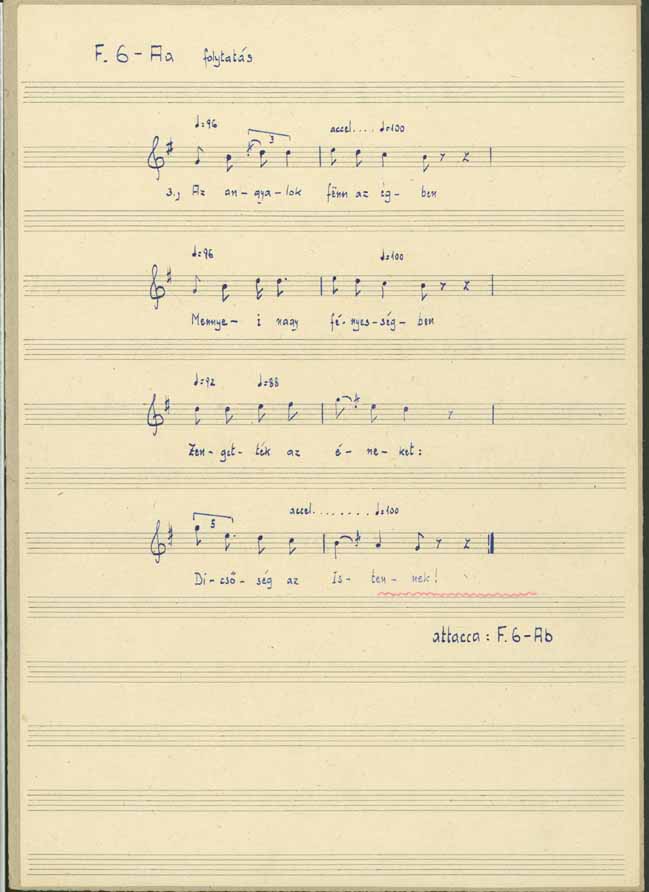 F. 6-Aa folytatás
♩=96 3 accel.... ♩=100
3., Az an-gya-lok fënn az ég-ben
♩=96 ♩=100
Mennye-i nagy fé-nyes-ség-ben
♩=92 ♩=88
Zen-get-ték az é-ne-ket:
5 accel........ ♩=100
Di-cső-ség az Is-ten-nek!
attacca: F. 6-Ab